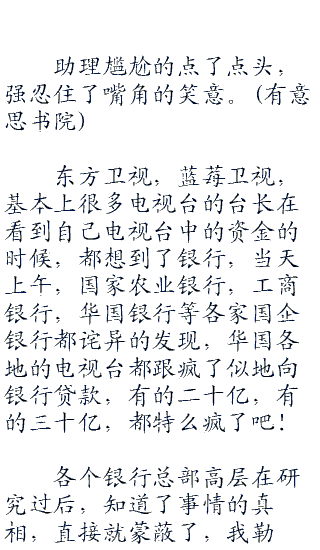 助理尴尬的点了点头，
强忍住了嘴角的笑意。(有意
思书院)
东方卫视，蓝莓卫视，
基本上很多电视台的台长在
看到自己电视台中的资金的
时候，都想到了银行，当天
上午，国家农业银行，工商
银行，华国银行等各家国企
银行都诧异的发现，华国各
地的电视台都跟疯了似地向
银行贷款，有的二十亿，有
的三十亿，都特么疯了吧！
各个银行总部高层在研
究过后，知道了事情的真
相，直接就蒙蔽了，我勒